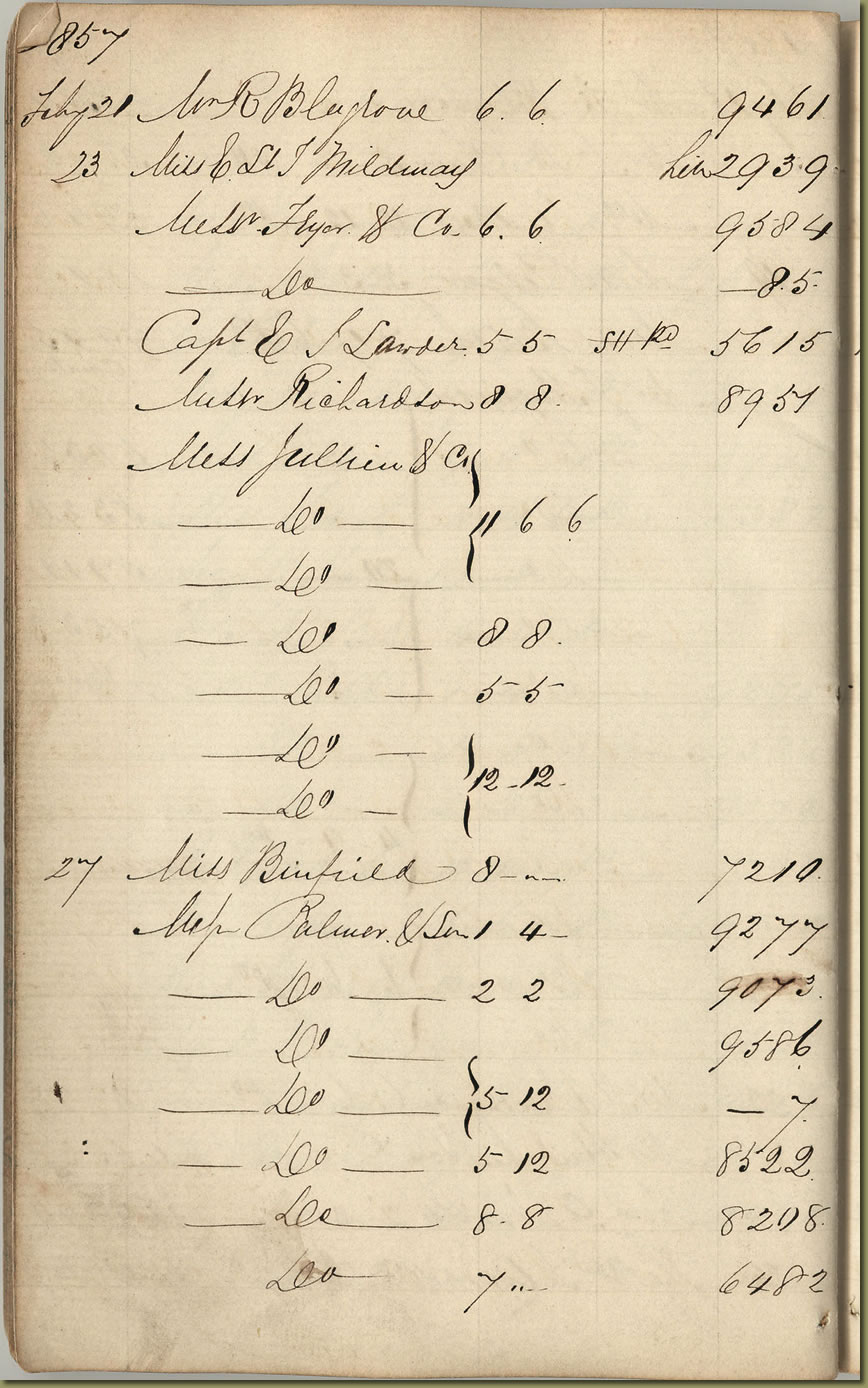 1857
Feby 21 Mr R Blagrove 6. 6. 9461
23 Miss E. St J Mildmay Lib 2939
Messr. Fryer & Co. 6. 6. 9584
— Do — — 85.
Capt E J Lawder. 5 5 SH 5615
Messr Richardson 8 8. 8951
Mess Jullien & Co
— Do — 11 6 6
— Do —
— Do — 8 8.
— Do — 5 5
— Do —
— Do — 12-12-
27 Miss Binfield 8 - " - 7210.
Messr Palmer. & Son 1 4 - 9277
— Do — 2 2 9073.
— Do — 9586
— Do — 5 12 — 7.
— Do — 5 12 8522.
— Do — 8. 8 8208.
Do — 7 " - 6482